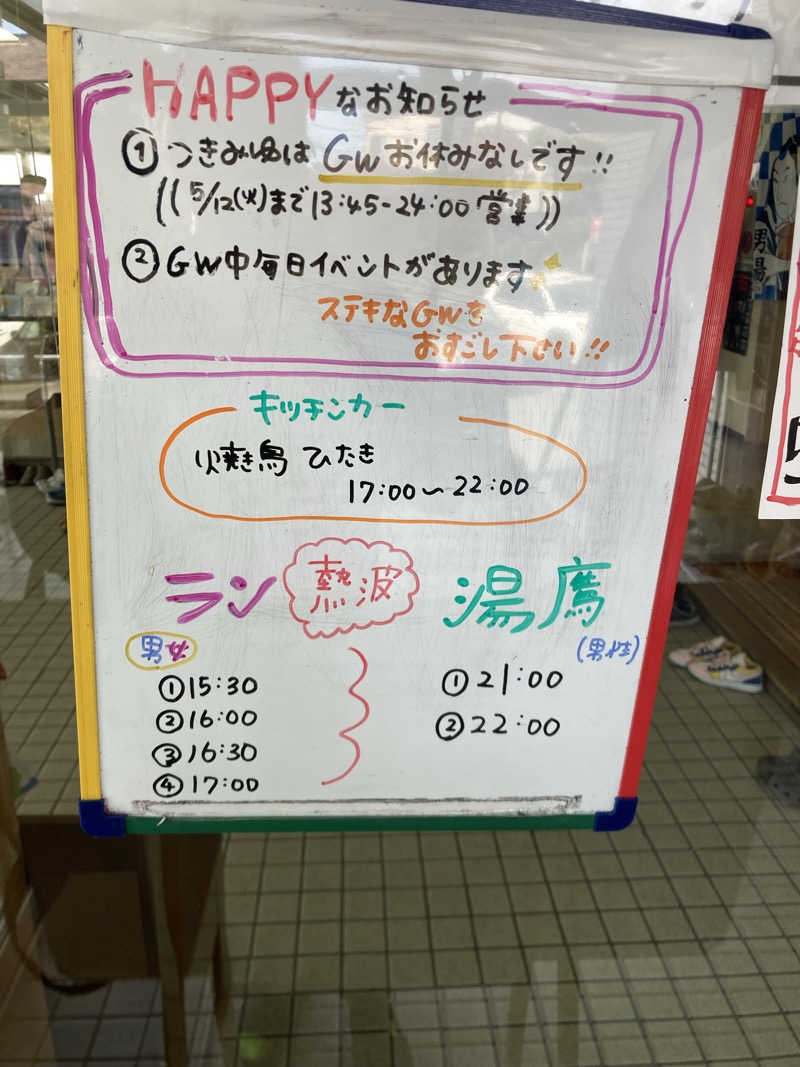 HAPPYなお知らせ
①つきみ湯は GWお休みなしです!!
((5/12(火)まで13:45-24:00営業))
②GW中毎日イベントがあります
ステキなGWを
おすごし下せい!!
キッチンカー
焼き鳥 ひたき
17:00~22:00
ラン 熱波 湯鷹
男女
(男性)
①15:30
②16:00
③16:30
④17:00
①21:00
②22:00
男湯